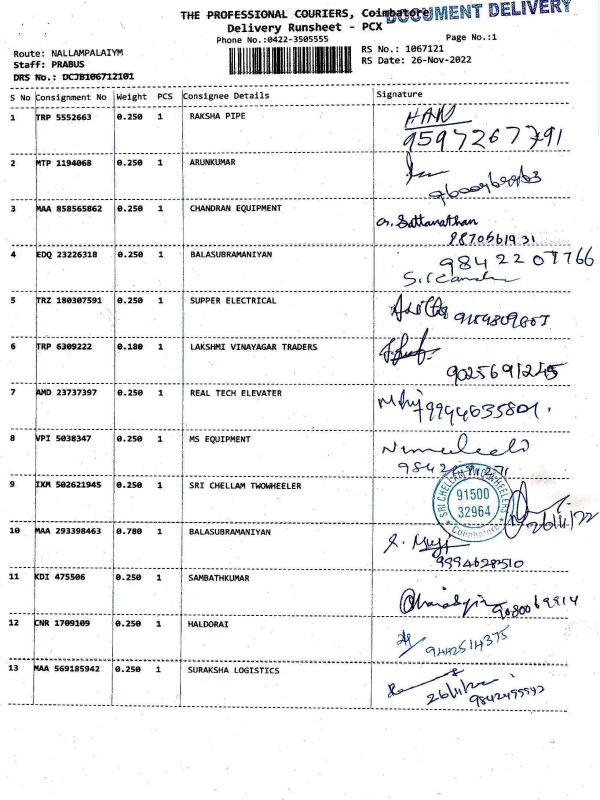 DOCUMENT DELIVERY
THE PROFESSIONAL COURIERS, Coimbatore
Delivery Runsheet - PCX
Phone No.:0422-3505555
Page No.:1
Route: NALLAMPALAIYM
RS No.: 1067121
Staff: PRABUS
RS Date: 26-Nov-2022
DRS No.: DCJB106712101
S No Consignment No Weight PCS Consignee Details Signature
1 TRP 5552663 0.250 1 RAKSHA PIPE
9597267791
2 MTP 1194068 0.250 1 ARUNKUMAR
3 MAA 858565862 0.250 1 CHANDRAN EQUIPMENT G. Sattanathan
8870561931
4 EDQ 23226318 0.250 1 BALASUBRAMANIYAN 9842207766
5 TRZ 180307591 0.250 1 SUPPER ELECTRICAL
6 TRP 6309222 0.180 1 LAKSHMI VINAYAGAR TRADERS
9025691245
7 AMD 23737397 0.250 1 REAL TECH ELEVATER
9994635801.
8 VPI 5038347 0.250 1 MS EQUIPMENT
9 IXM 502621945 0.250 1 SRI CHELLAM TWOWHEELER
SRI CHELLAM TWOWHEELERS
91500
32964
Coimbatore
26/11/22
10 MAA 293398463 0.780 1 BALASUBRAMANIYAN
9994628510
11 KDI 475506 0.250 1 SAMBATHKUMAR
9080069914
12 CNR 1709109 0.250 1 HALDORAI
9442514375
13 MAA 569185942 0.250 1 SURAKSHA LOGISTICS
26/11/22